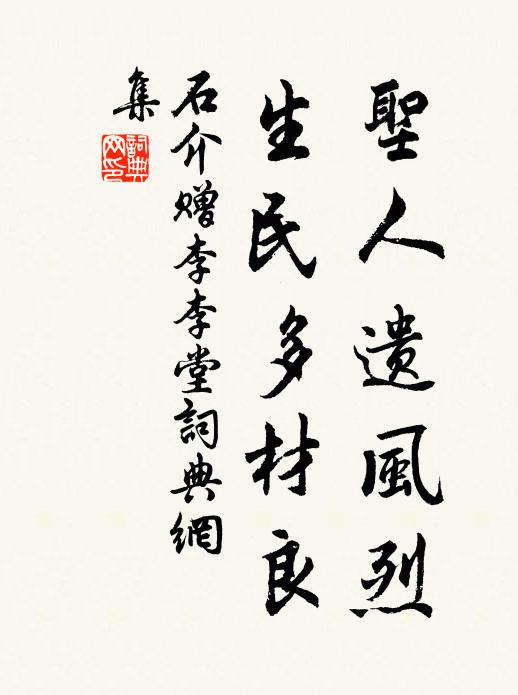 聖人遺風烈
生民多材良
石介贈李李堂詞典網
集
詞典網印